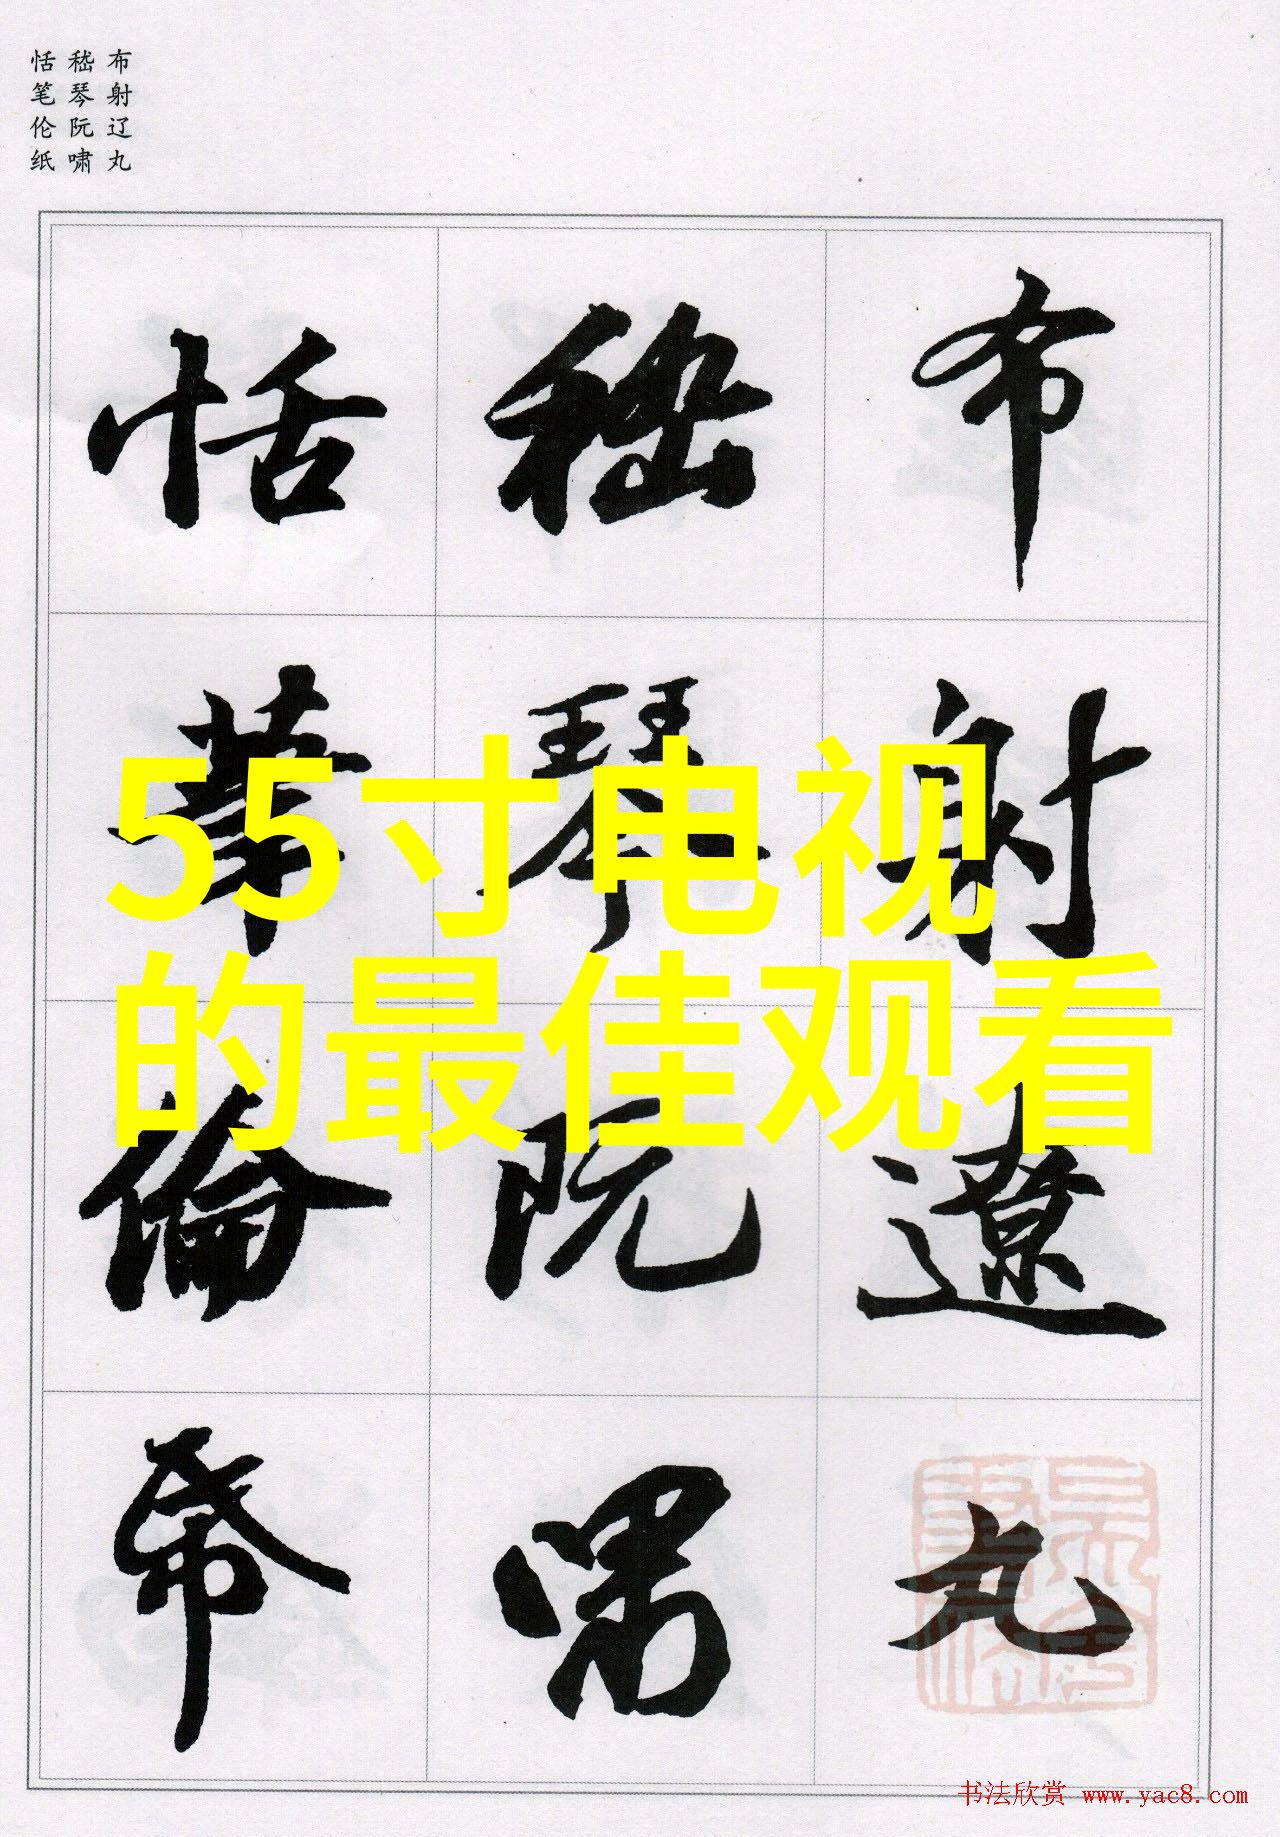 布射辽丸
嵇琴阮啸
恬笔伦纸
布射遼丸
嵇琴阮嘯
恬筆倫帋
55寸电视
的最佳观看
书法欣赏 www.yac8.com